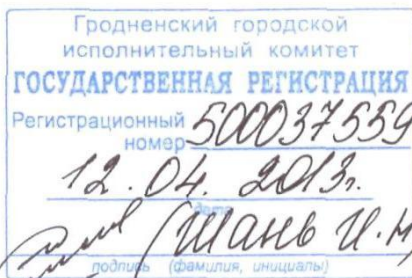 Гродненский городской
исполнительный комитет
ГОСУДАРСТВЕННАЯ РЕГИСТРАЦИЯ
Регистрационный
номер 500037559
12.04.2013г.
дата
(Шань И.Н
подпись (фамилия, инициалы)